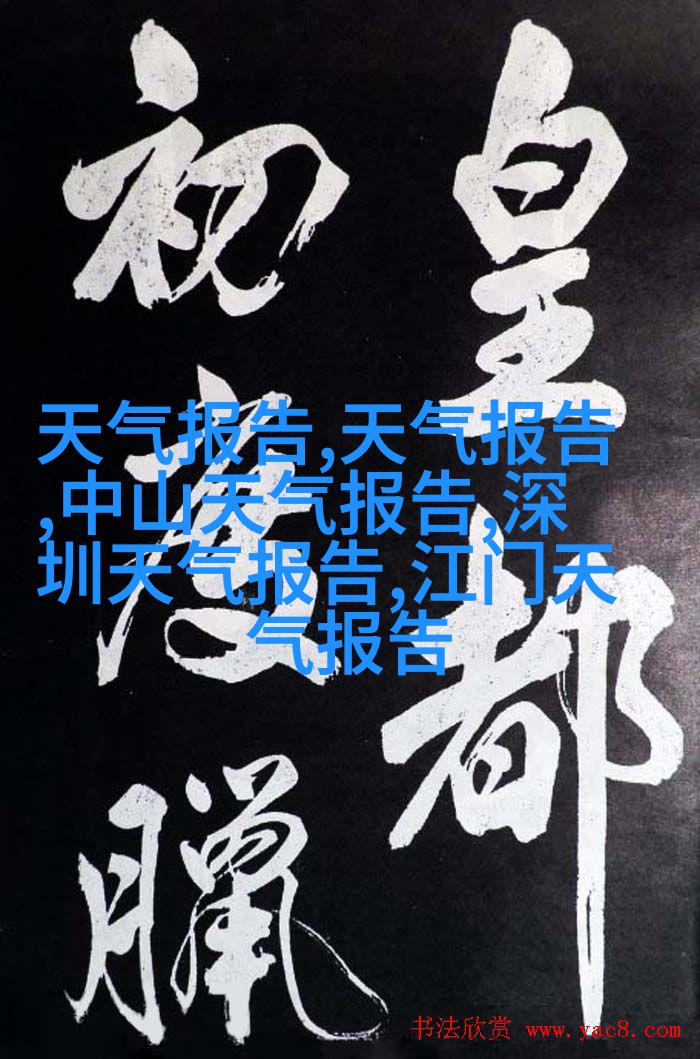 皇都
初度臘
天气报告,天气报告
,中山天气报告,深
圳天气报告,江门天
气报告
书法欣赏 www.yac8.com